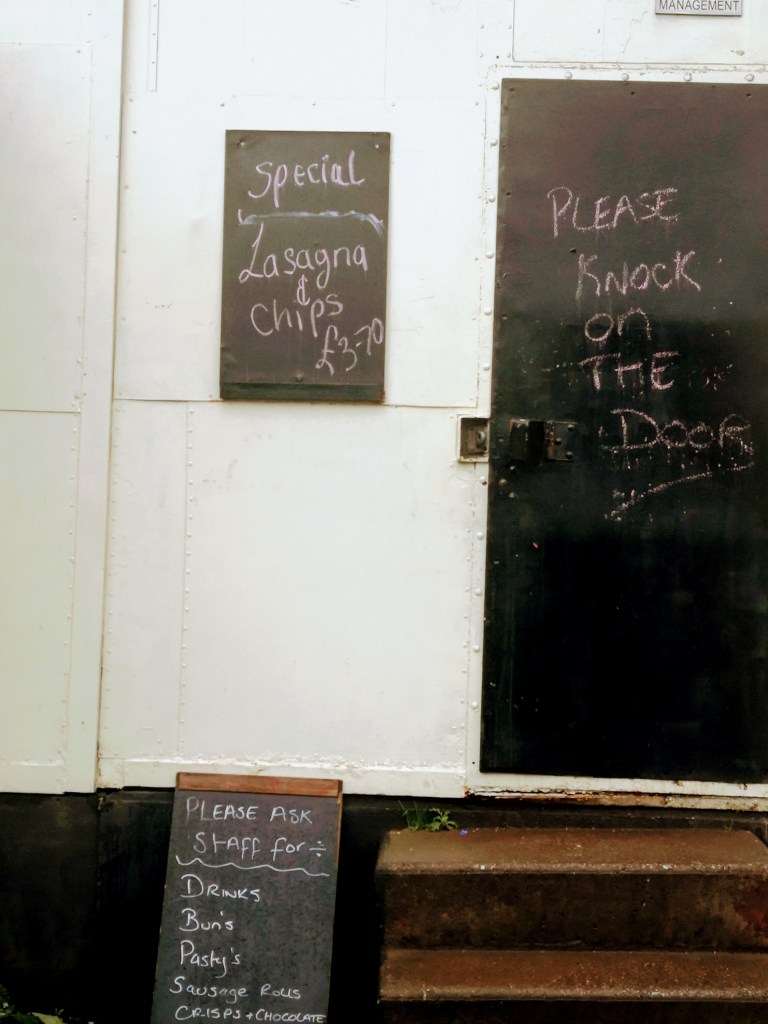 MANAGEMENT
Special
Lasagna
&
Chips
£3-70
PLEASE
KNOCK
on
THE
DOOR
PLEASE ASK
STAFF for ÷
DRINKS
Bun's
Pasty's
Sausage Rolls
CRISPS + CHOCOLATE